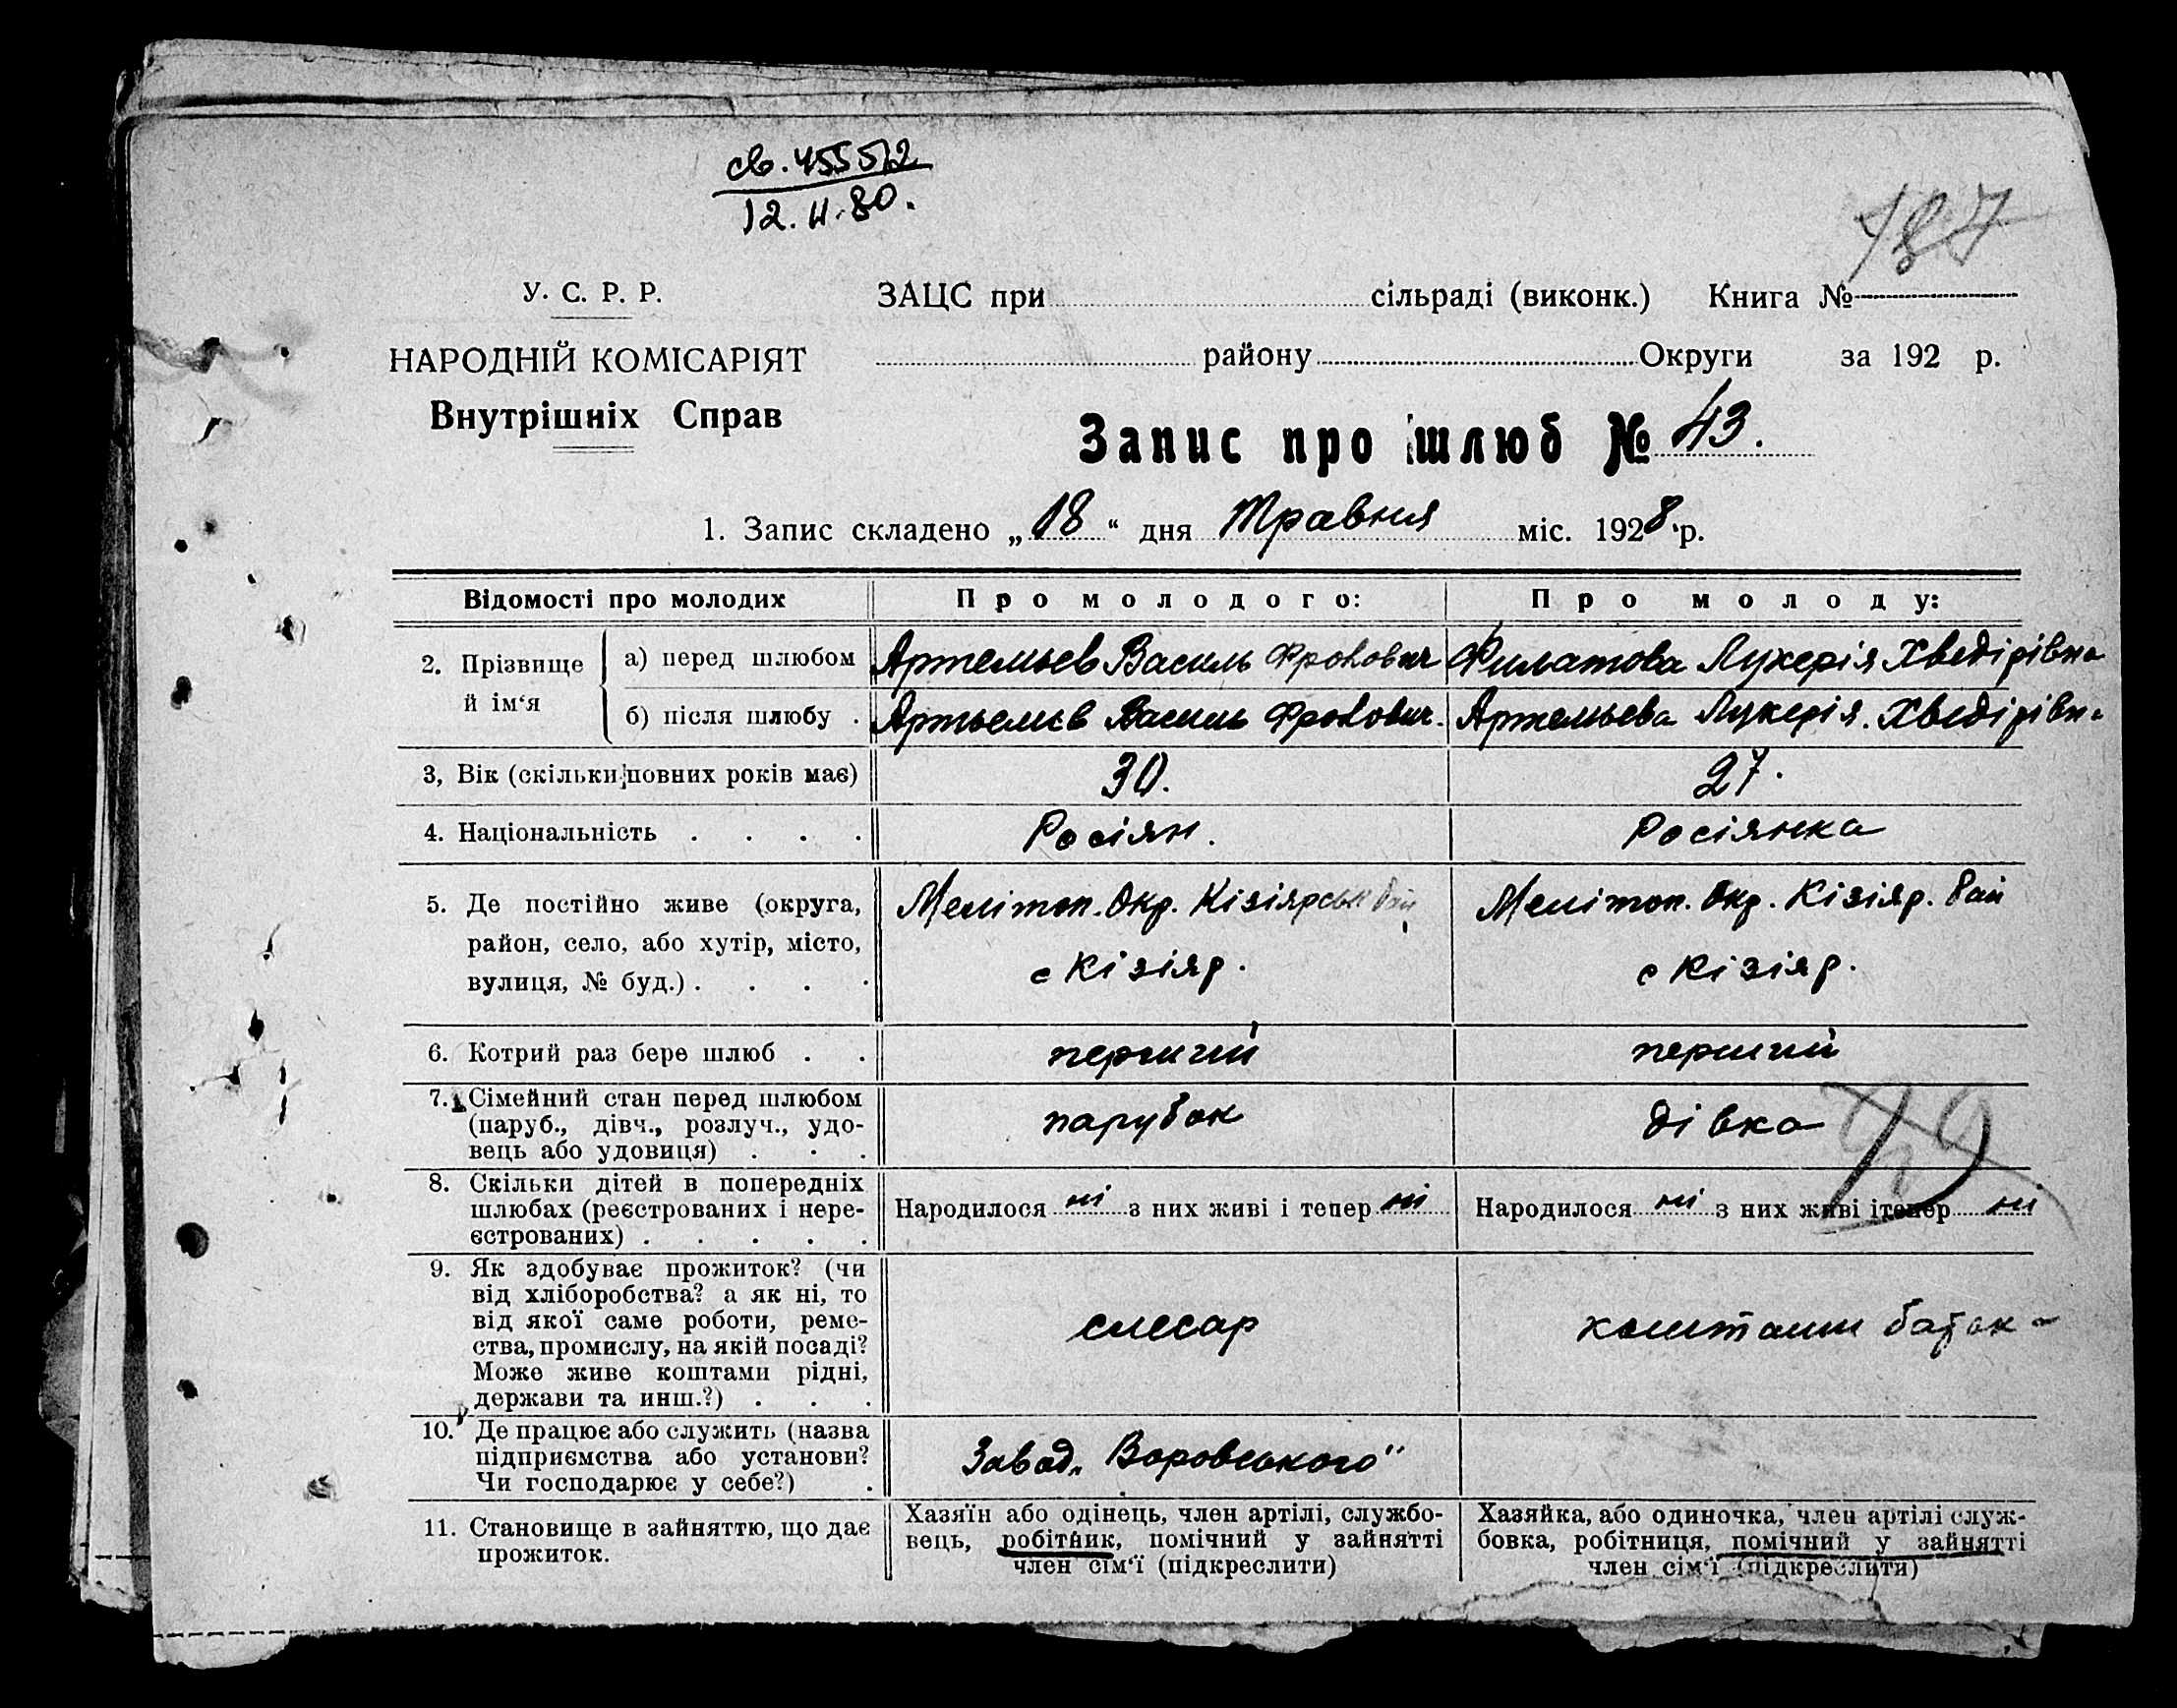 св. 455512
12.II.80.
187
У. С. Р. Р.
ЗАЦС при сільраді (виконк.) Книга №
НАРОДНІЙ КОМІСАРІЯТ
району Округи за 192 р.
Внутрішніх Справ
Запис про шлюб № 43.
1. Запис складено „18“ дня Травня міс. 1928 р.
Відомості про молодих
Про молодого:
Про молоду:
2. Прізвище й ім‘я
а) перед шлюбом
Артемьєв Василь Фролович
Филатова Лукерія Хведірівна
б) після шлюбу .
Артьємєв Василь Фролович.
Артемьева Лукерія. Хведірівна
3, Вік (скільки повних років має)
30.
27.
4. Національність . . . .
Росіян.
Росіянка
5. Де постійно живе (округа,
район, село, або хутір, місто,
вулиця, № буд.) . . . .
Мелітоп. Окр. Кізіярськ Рай
с Кізіяр.
Мелітоп. Окр. Кізіяр. Рай
с Кізіяр.
6. Котрий раз бере шлюб . .
перший
перший
7. Сімейний стан перед шлюбом
(паруб., дівч., розлуч., удо-
вець або удовиця) . . .
парубок
дівка
8. Скільки дітей в попередніх
шлюбах (реєстрованих і нере-
єстрованих) . . . . .
Народилося ні з них живі і тепер ні
Народилося ні з них живі ітепер ні
9. Як здобуває прожиток? (чи
від хліборобства? а як ні, то
від якої саме роботи, реме-
ства, промислу, на якій посаді?
Може живе коштами рідні,
держави та инш.?) . . .
слесар
коштами батьк
10. Де працює або служить (назва
підприємства або установи?
Чи господарює у себе?) .
Завод „Воровського"
11. Становище в зайняттю, що дає
прожиток.
Хазяїн або одінець, член артілі, службо-
вець, робітник, помічний у зайнятті
член сім‘ї (підкреслити)
Хазяйка, або одиночка, член артілі служ-
бовка, робітниця, помічний у зайнятті
член сім‘ї (підкреслити)